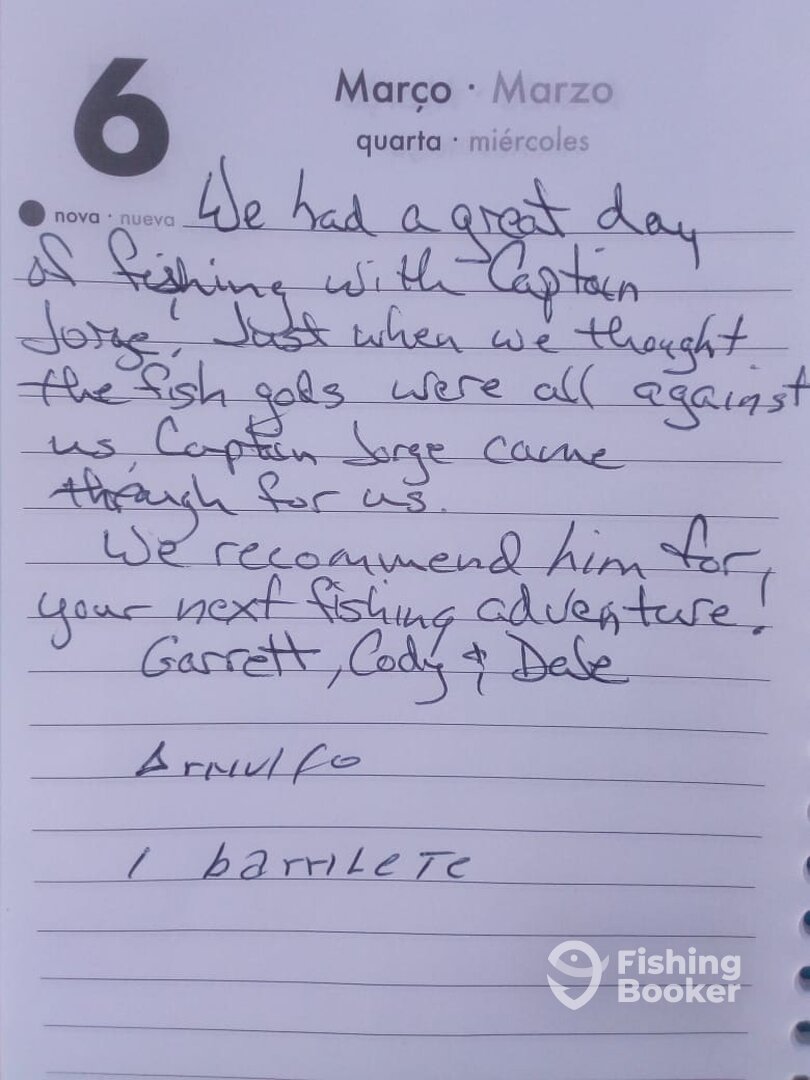 6
Março · Marzo
quarta · miércoles
nova · nueva
We had a great day
of fishing with Captain
Jorge! Just when we thought
the fish gods were all against
us, Captain Jorge came
through for us.
We recommend him for
your next fishing adventure!
Garrett, Cody & Dale
Arnulfo
1 barrilete
Fishing
Booker